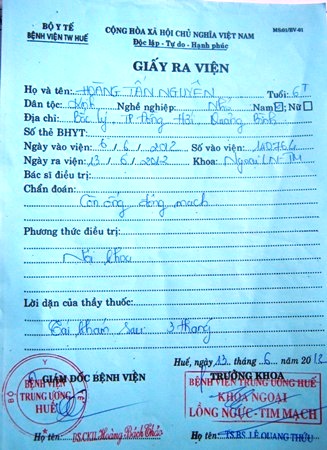 BỘ Y TẾ
BỆNH VIỆN TW HUẾ
CỘNG HÒA XÃ HỘI CHỦ NGHĨA VIỆT NAM
Độc lập - Tự do - Hạnh phúc
MS:01/BV-01
GIẤY RA VIỆN
Họ và tên: HOÀNG TẤN NGUYÊN Tuổi: 6T
Dân tộc: Kinh Nghề nghiệp: Nhỏ Nam ☑; Nữ ☐
Địa chỉ: Bắc lý, TP Đồng Hới, Quảng Bình
Số thẻ BHYT:
Ngày vào viện: 6/6/2012 Số vào viện: 140764
Ngày ra viện: 13/6/2012 Khoa: Ngoại LN-TM
Bác sĩ điều trị:
Chẩn đoán:
Còn ống động mạch
Phương thức điều trị:
Nội khoa
Lời dặn của thầy thuốc:
Tái khám sau 3 tháng
Huế, ngày 13 tháng 6 năm 2012
GIÁM ĐỐC BỆNH VIỆN
TRƯỞNG KHOA
BỆNH VIỆN TRUNG ƯƠNG HUẾ
BỆNH VIỆN TRUNG ƯƠNG HUẾ
KHOA NGOẠI
LỒNG NGỰC - TIM MẠCH
Họ tên: BS.CKII. Hoàng Bách Thảo
Họ tên: TS.BS LÊ QUANG THỨU